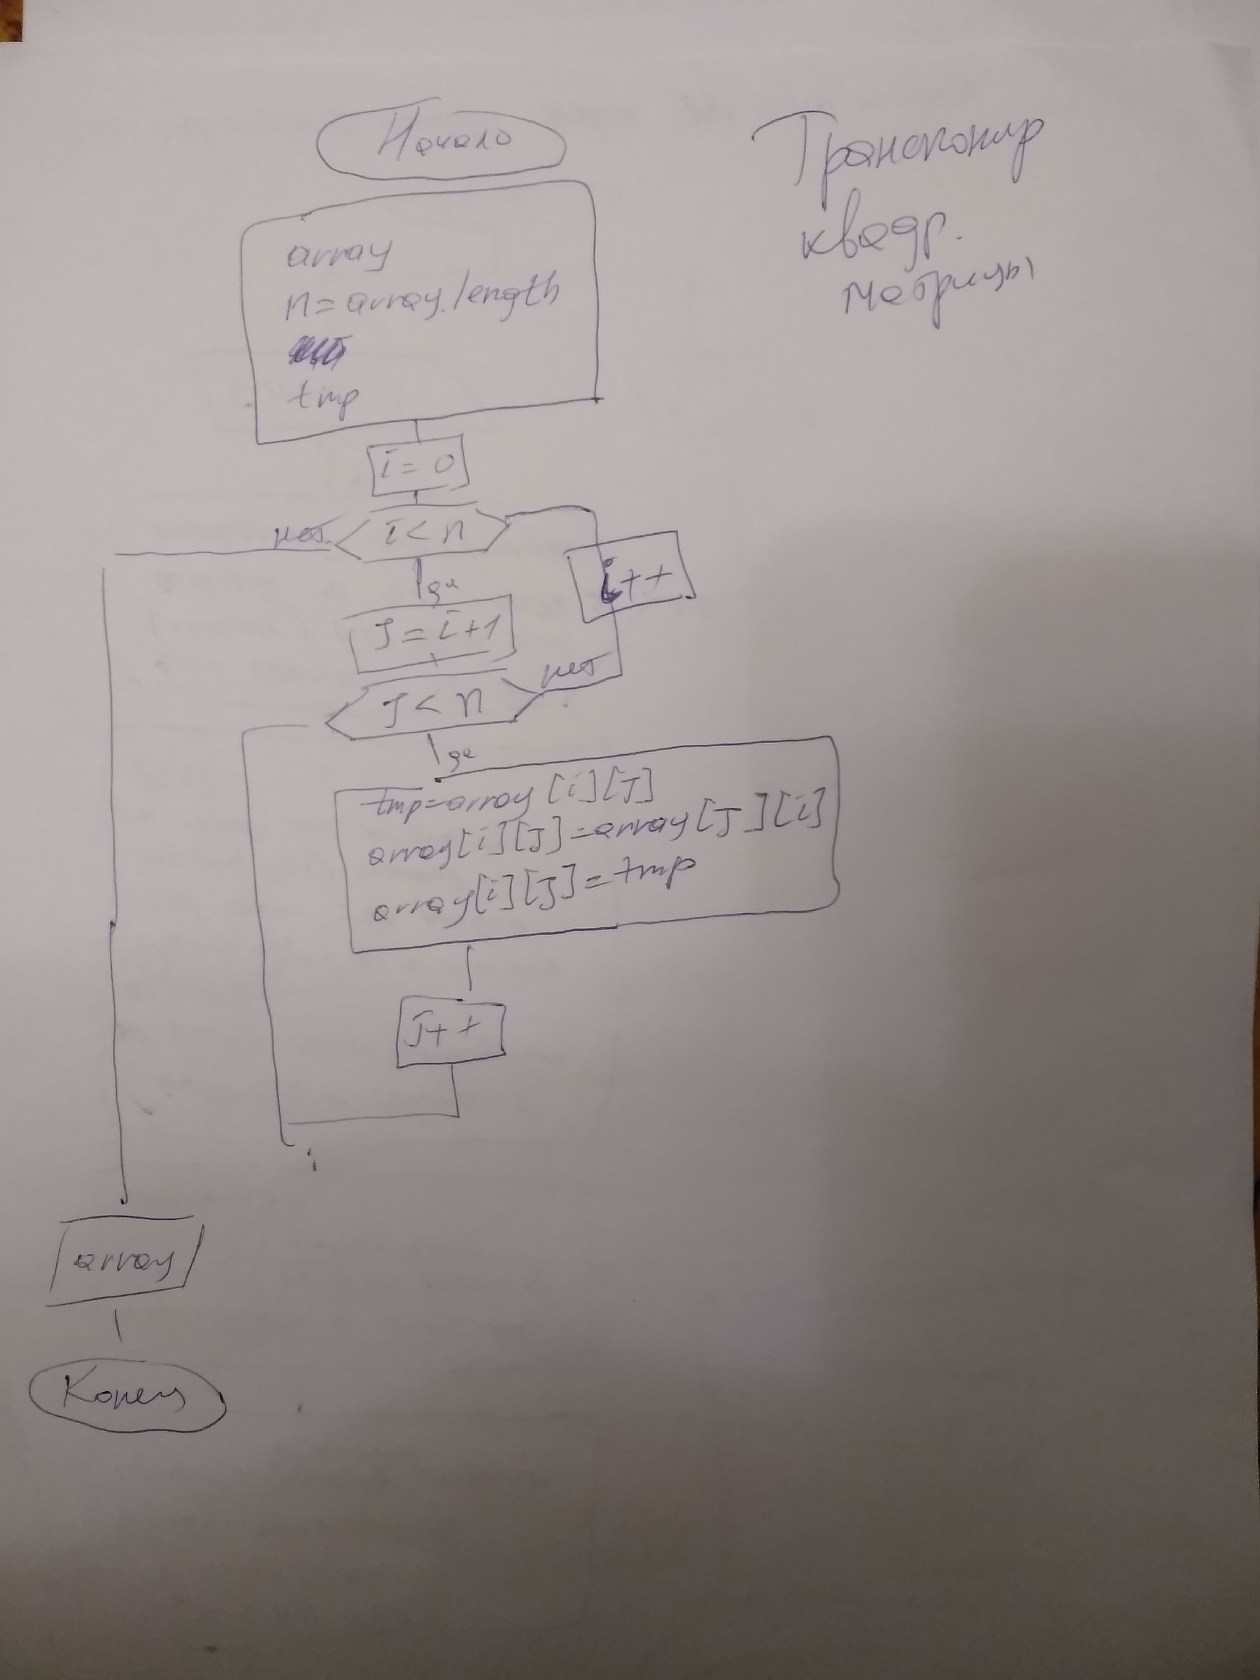 Начало
Транспонир
квадр.
матрицы
array
n=array.length
tmp
i=0
нет
i<n
да
i++
J=i+1
нет
J<n
да
tmp=array[i][J]
array[i][J]=array[J][i]
array[i][J]=tmp
J++
array
Конец